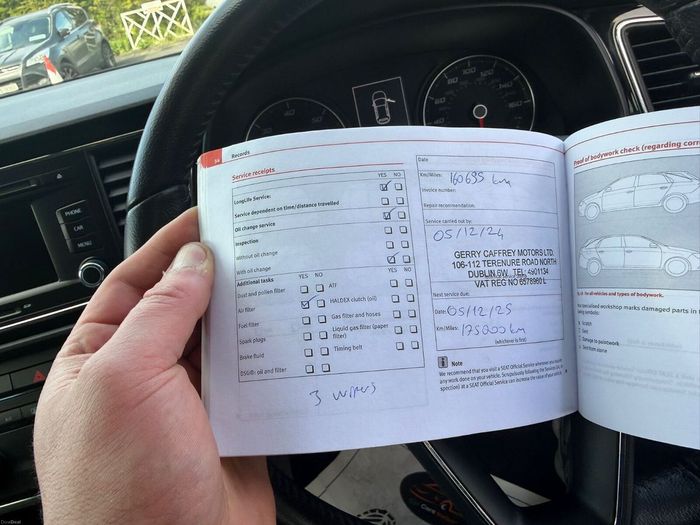 54 Records
Service receipts
YES NO
LongLife Service:
Service dependent on time/distance travelled
Oil change service
Inspection
Without oil change
With oil change
Additional tasks YES NO YES NO
Dust and pollen filter
ATF
Air filter
HALDEX clutch (oil)
Fuel filter
Gas filter and hoses
Spark plugs
Liquid gas filter (paper filter)
Brake fluid
Timing belt
DSG®: oil and filter
3 wipers
Date
Km/Miles: 160695 km
Invoice number:
Repair recommendation:
Service carried out by:
05/12/24
GERRY CAFFREY MOTORS LTD.
106-112 TERENURE ROAD NORTH
DUBLIN 6W. TEL: 4901134
VAT REG NO 6578960 L
Next service due:
Date: 05/12/25
Km/Miles: 175000 km
(whichever is first)
Note
We recommend that you visit a SEAT Official Service whenever you
any work done on your vehicle. Scrupulously following the Services (or
spection) at a SEAT Official Service can increase the value of your vehicle.
Proof of bodywork check (regarding corr
for all vehicles and types of bodywork.
specialised workshop marks damaged parts in
ing symbols:
Scratch
Dent
Damage to paintwork
Dent from stone
PHONE
CAR
MENU
DoneDeal